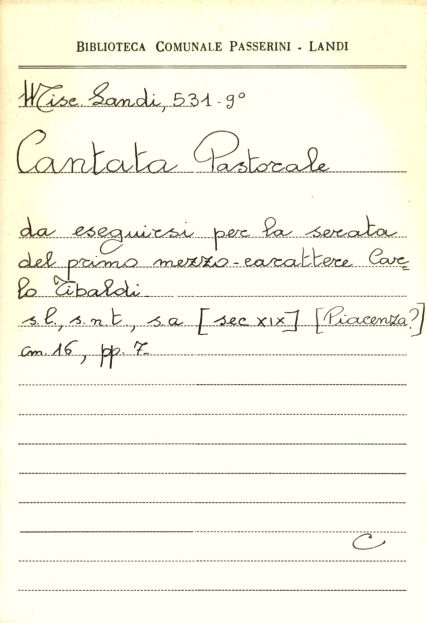 BIBLIOTECA COMUNALE PASSERINI - LANDI
Misc. Landi, 531-9°
Cantata Pastorale
da eseguirsi per la serata
del primo mezzo-carattere Car=
lo Tibaldi-
s.l., s.n.t., s.a [sec XIX] [Piacenza?]
cm. 16, pp. 7-
C